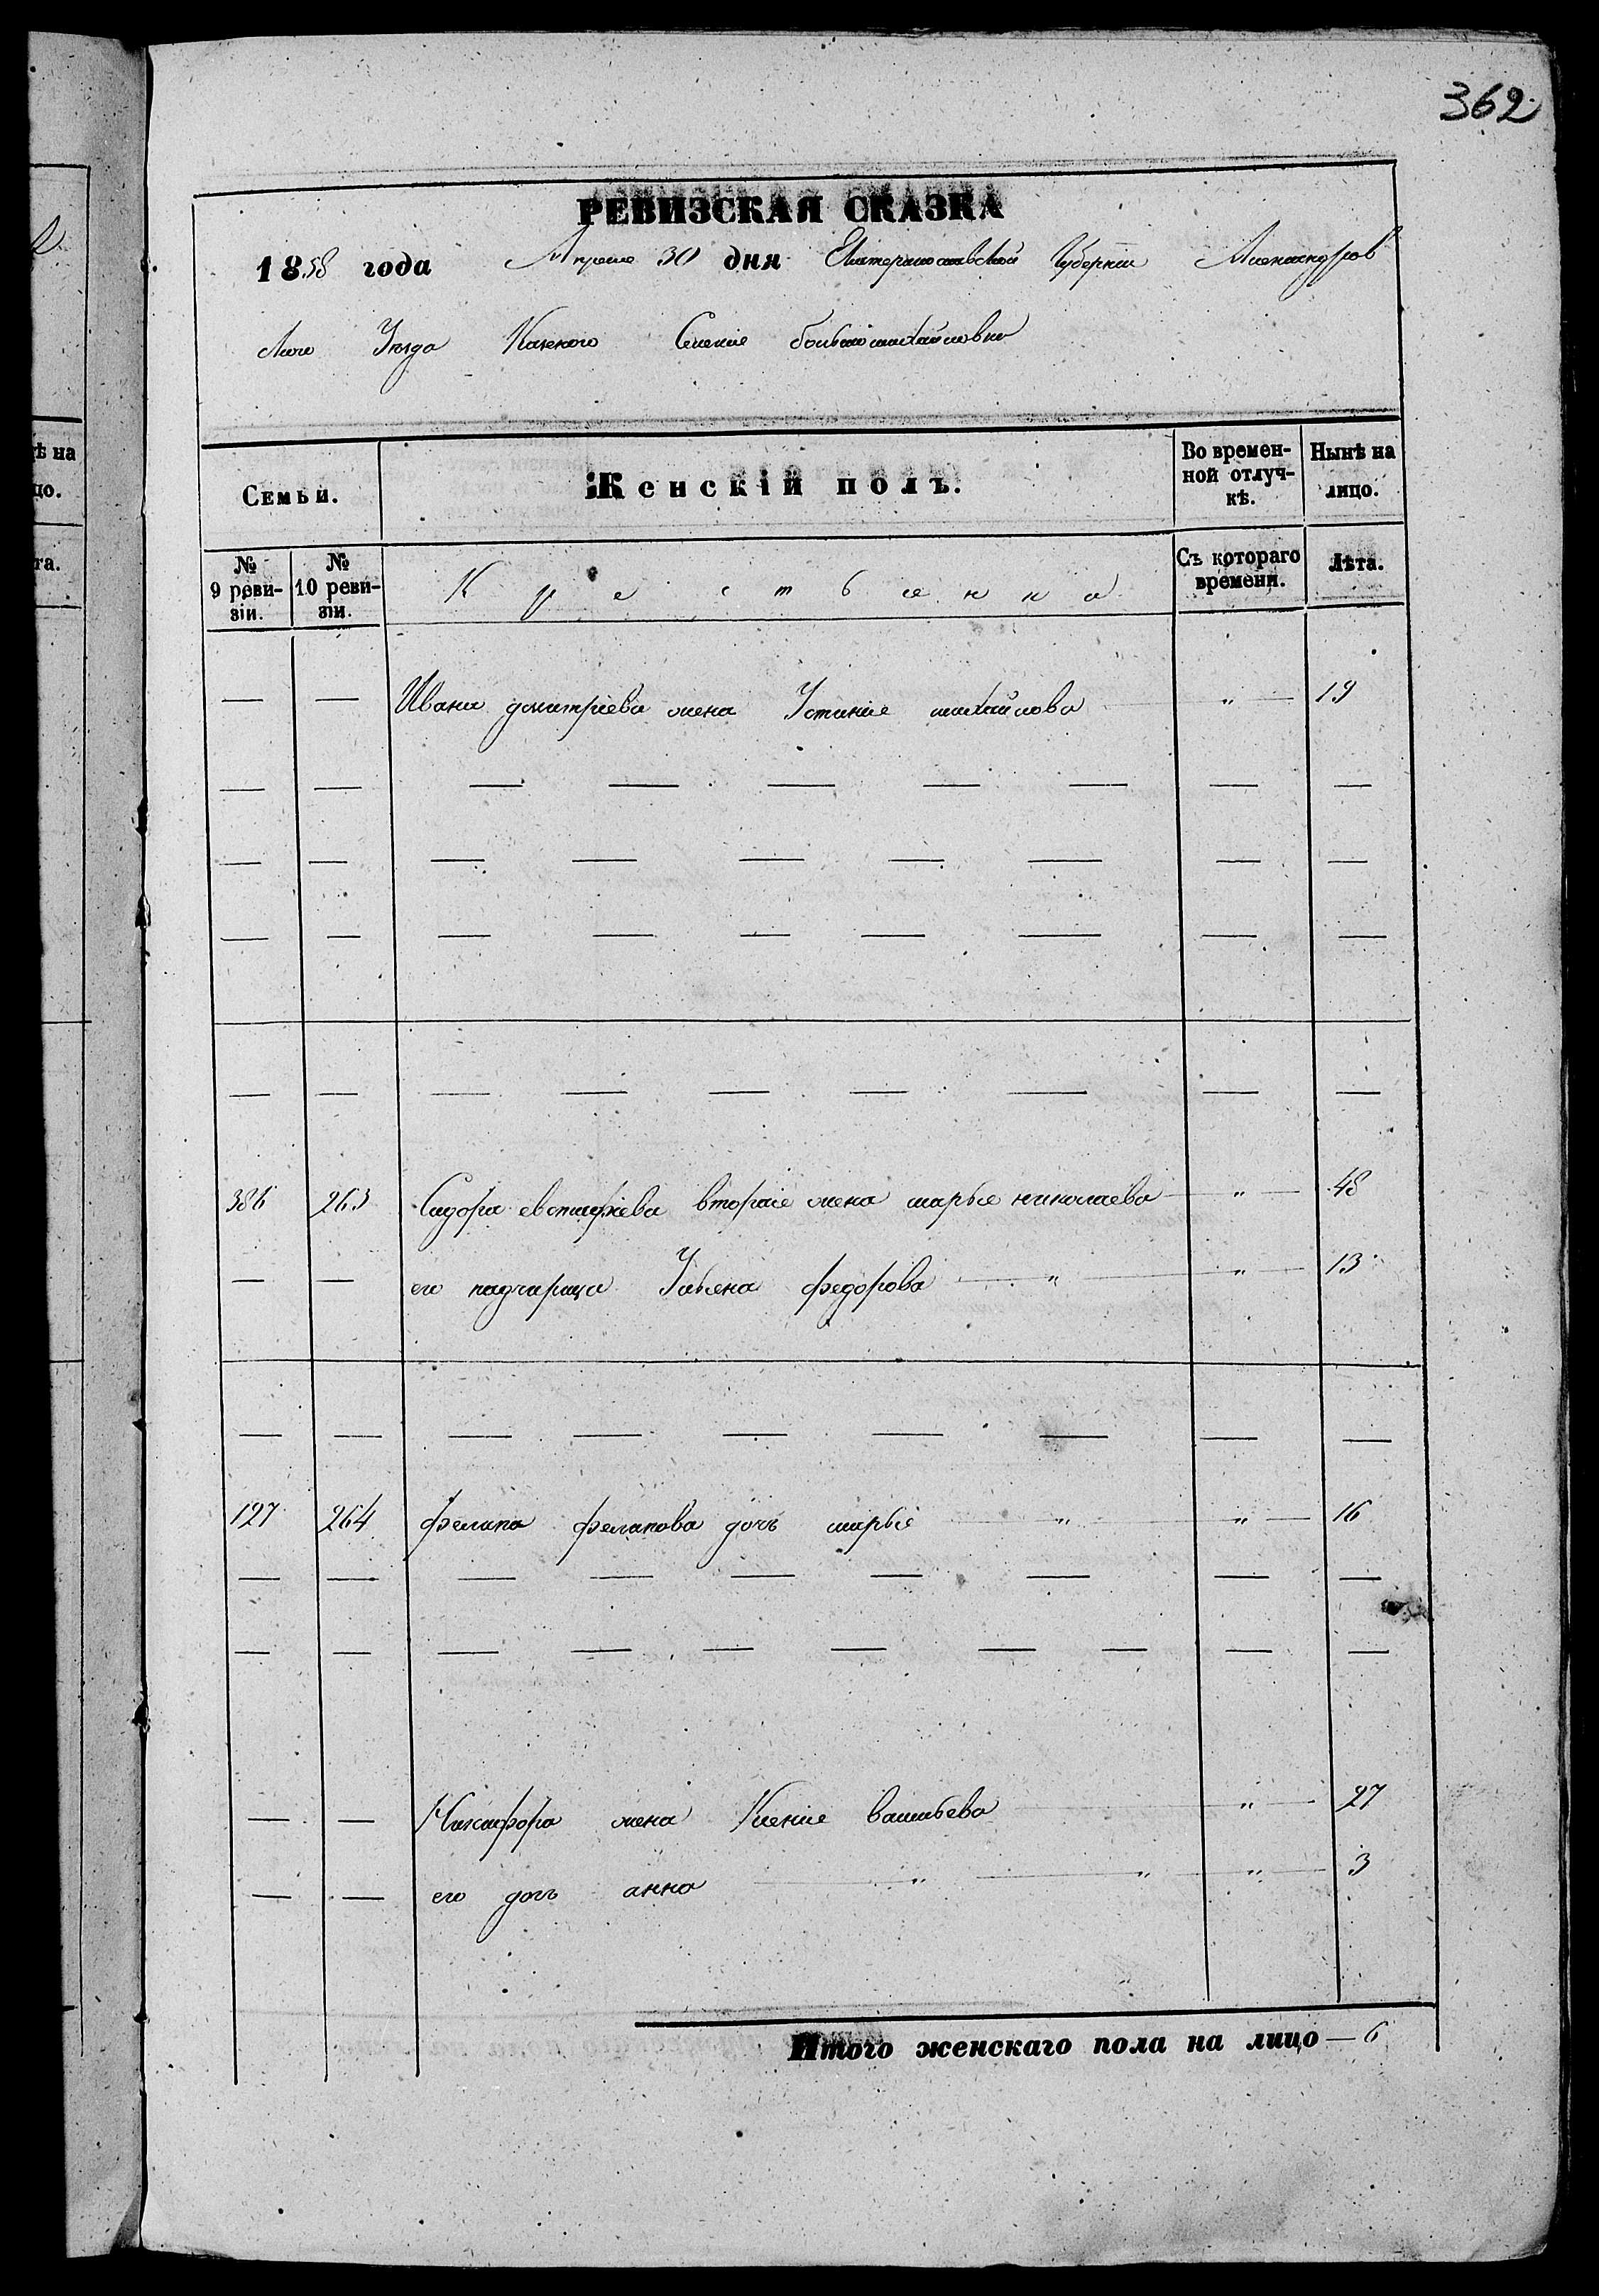 362
РЕВИЗСКАЯ СКАЗКА
1858 года Апреля 30 дня Екатеринославской Губернии Александров
скаго Уезда Казеного Селения большомихайловки
Семьи. Женскій полъ. Во времен-ной отлуч-кѣ. Нынѣ на лицо.
№ 9 реви-зіи. № 10 реви-зіи. Крестьянка Съ котораго времени. Лѣта.
— — Ивана дмитріева жена Устиния михайлова " — 19
— — — — — — — — —
— — — — — — — — —
— — — — — — — — —
— — — — — — — — —
386 263 Сидора евстафиева вторая жена марья николаева — " — 48
— — его падчерица Ульяна федорова — " — " — 13
— — — — — — — — —
127 264 филипа филипова дочь марья — " — " — 16
— — — — — — — — —
— — — — — — — — — —
— — Никифора жена Ксения васильева — " — 27
— — его дочь анна — " — " — " — 3
Итого женскаго пола на лицо — 6
ѣ на
цо.
та.